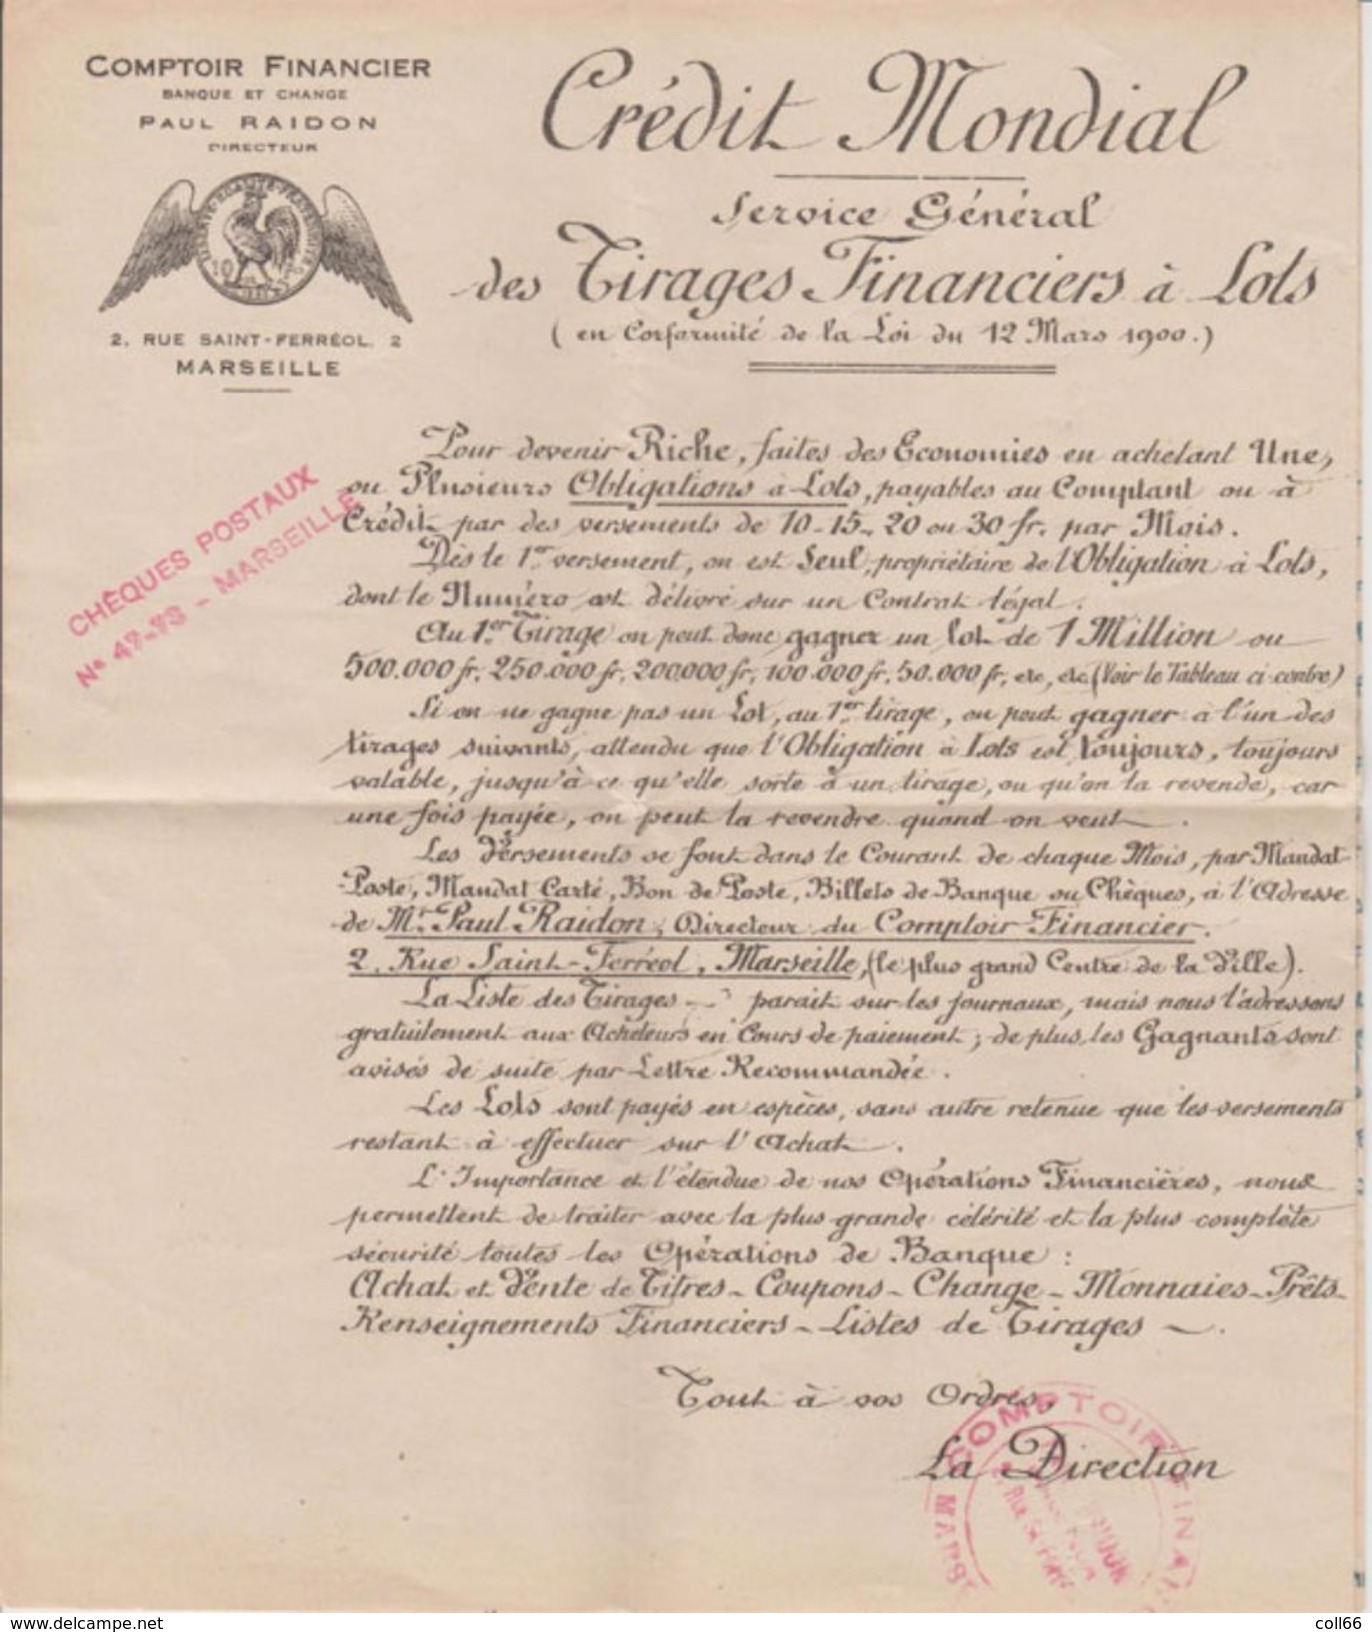 COMPTOIR FINANCIER
BANQUE ET CHANGE
PAUL RAIDON
DIRECTEUR
LIBERTÉ-EGALITÉ-FRATERNITÉ
2, RUE SAINT-FERRÉOL, 2
MARSEILLE
Crédit Mondial
Service Général
des Tirages Financiers à Lots
(en Conformité de la Loi du 12 Mars 1900.)
CHÈQUES POSTAUX
N° 47-73 - MARSEILLE
Pour devenir Riche, faites des Economies en achetant Une,
ou Plusieurs Obligations à Lots, payables au Comptant ou à
Crédit par des versements de 10-15-20 ou 30 fr. par Mois.
Dès le 1er versement, on est Seul, propriétaire de l'Obligation à Lots,
dont le Numéro est délivré sur un Contrat légal.
Au 1er Tirage on peut donc gagner un lot de 1 Million ou
500.000 fr, 250.000 fr, 200.000 fr, 100.000 fr, 50.000 fr, etc, etc (Voir le Tableau ci-contre)
Si on ne gagne pas un Lot, au 1er tirage, on peut gagner à l'un des
tirages suivants, attendu que l'Obligation à Lots est toujours, toujours
valable, jusqu'à ce qu'elle sorte à un tirage, ou qu'on la revende, car
une fois payée, on peut la revendre quand on veut.
Les Versements se font dans le Courant de chaque Mois, par Mandat-
Poste, Mandat Carte, Bon de Poste, Billets de Banque ou Chèques, à l'Adresse
de Mr. Paul Raidon, Directeur du Comptoir Financier.
2, Rue Saint-Ferréol, Marseille, (le plus grand Centre de la Ville).
La Liste des Tirages parait sur les journaux, mais nous l'adressons
gratuitement aux Acheteurs en Cours de paiement; de plus, les Gagnants sont
avisés de suite par Lettre Recommandée.
Les Lots sont payés en espèces, sans autre retenue que les versements
restant à effectuer sur l'Achat.
L'Importance et l'étendue de nos Opérations Financières, nous
permettent de traiter avec la plus grande célérité et la plus complète
sécurité toutes les Opérations de Banque:
Achat et Vente de Titres - Coupons - Change - Monnaies - Prêts-
Renseignements Financiers - Listes de Tirages -.
Tout à vos Ordres,
La Direction
COMPTOIR FINA
MARS
www.delcampe.net
coll66